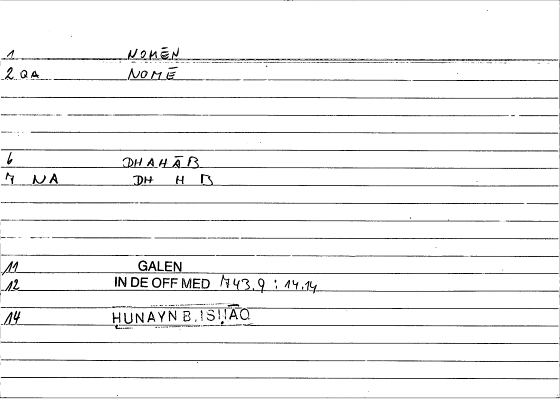 1 NOMĒN
2 QA NOMĒ
6 DHAHĀB
7 NA DH H B
11 GALEN
12 IN DE OFF MED 743,9 : 14.14
14 ḤUNAYN B. ISḤĀQ